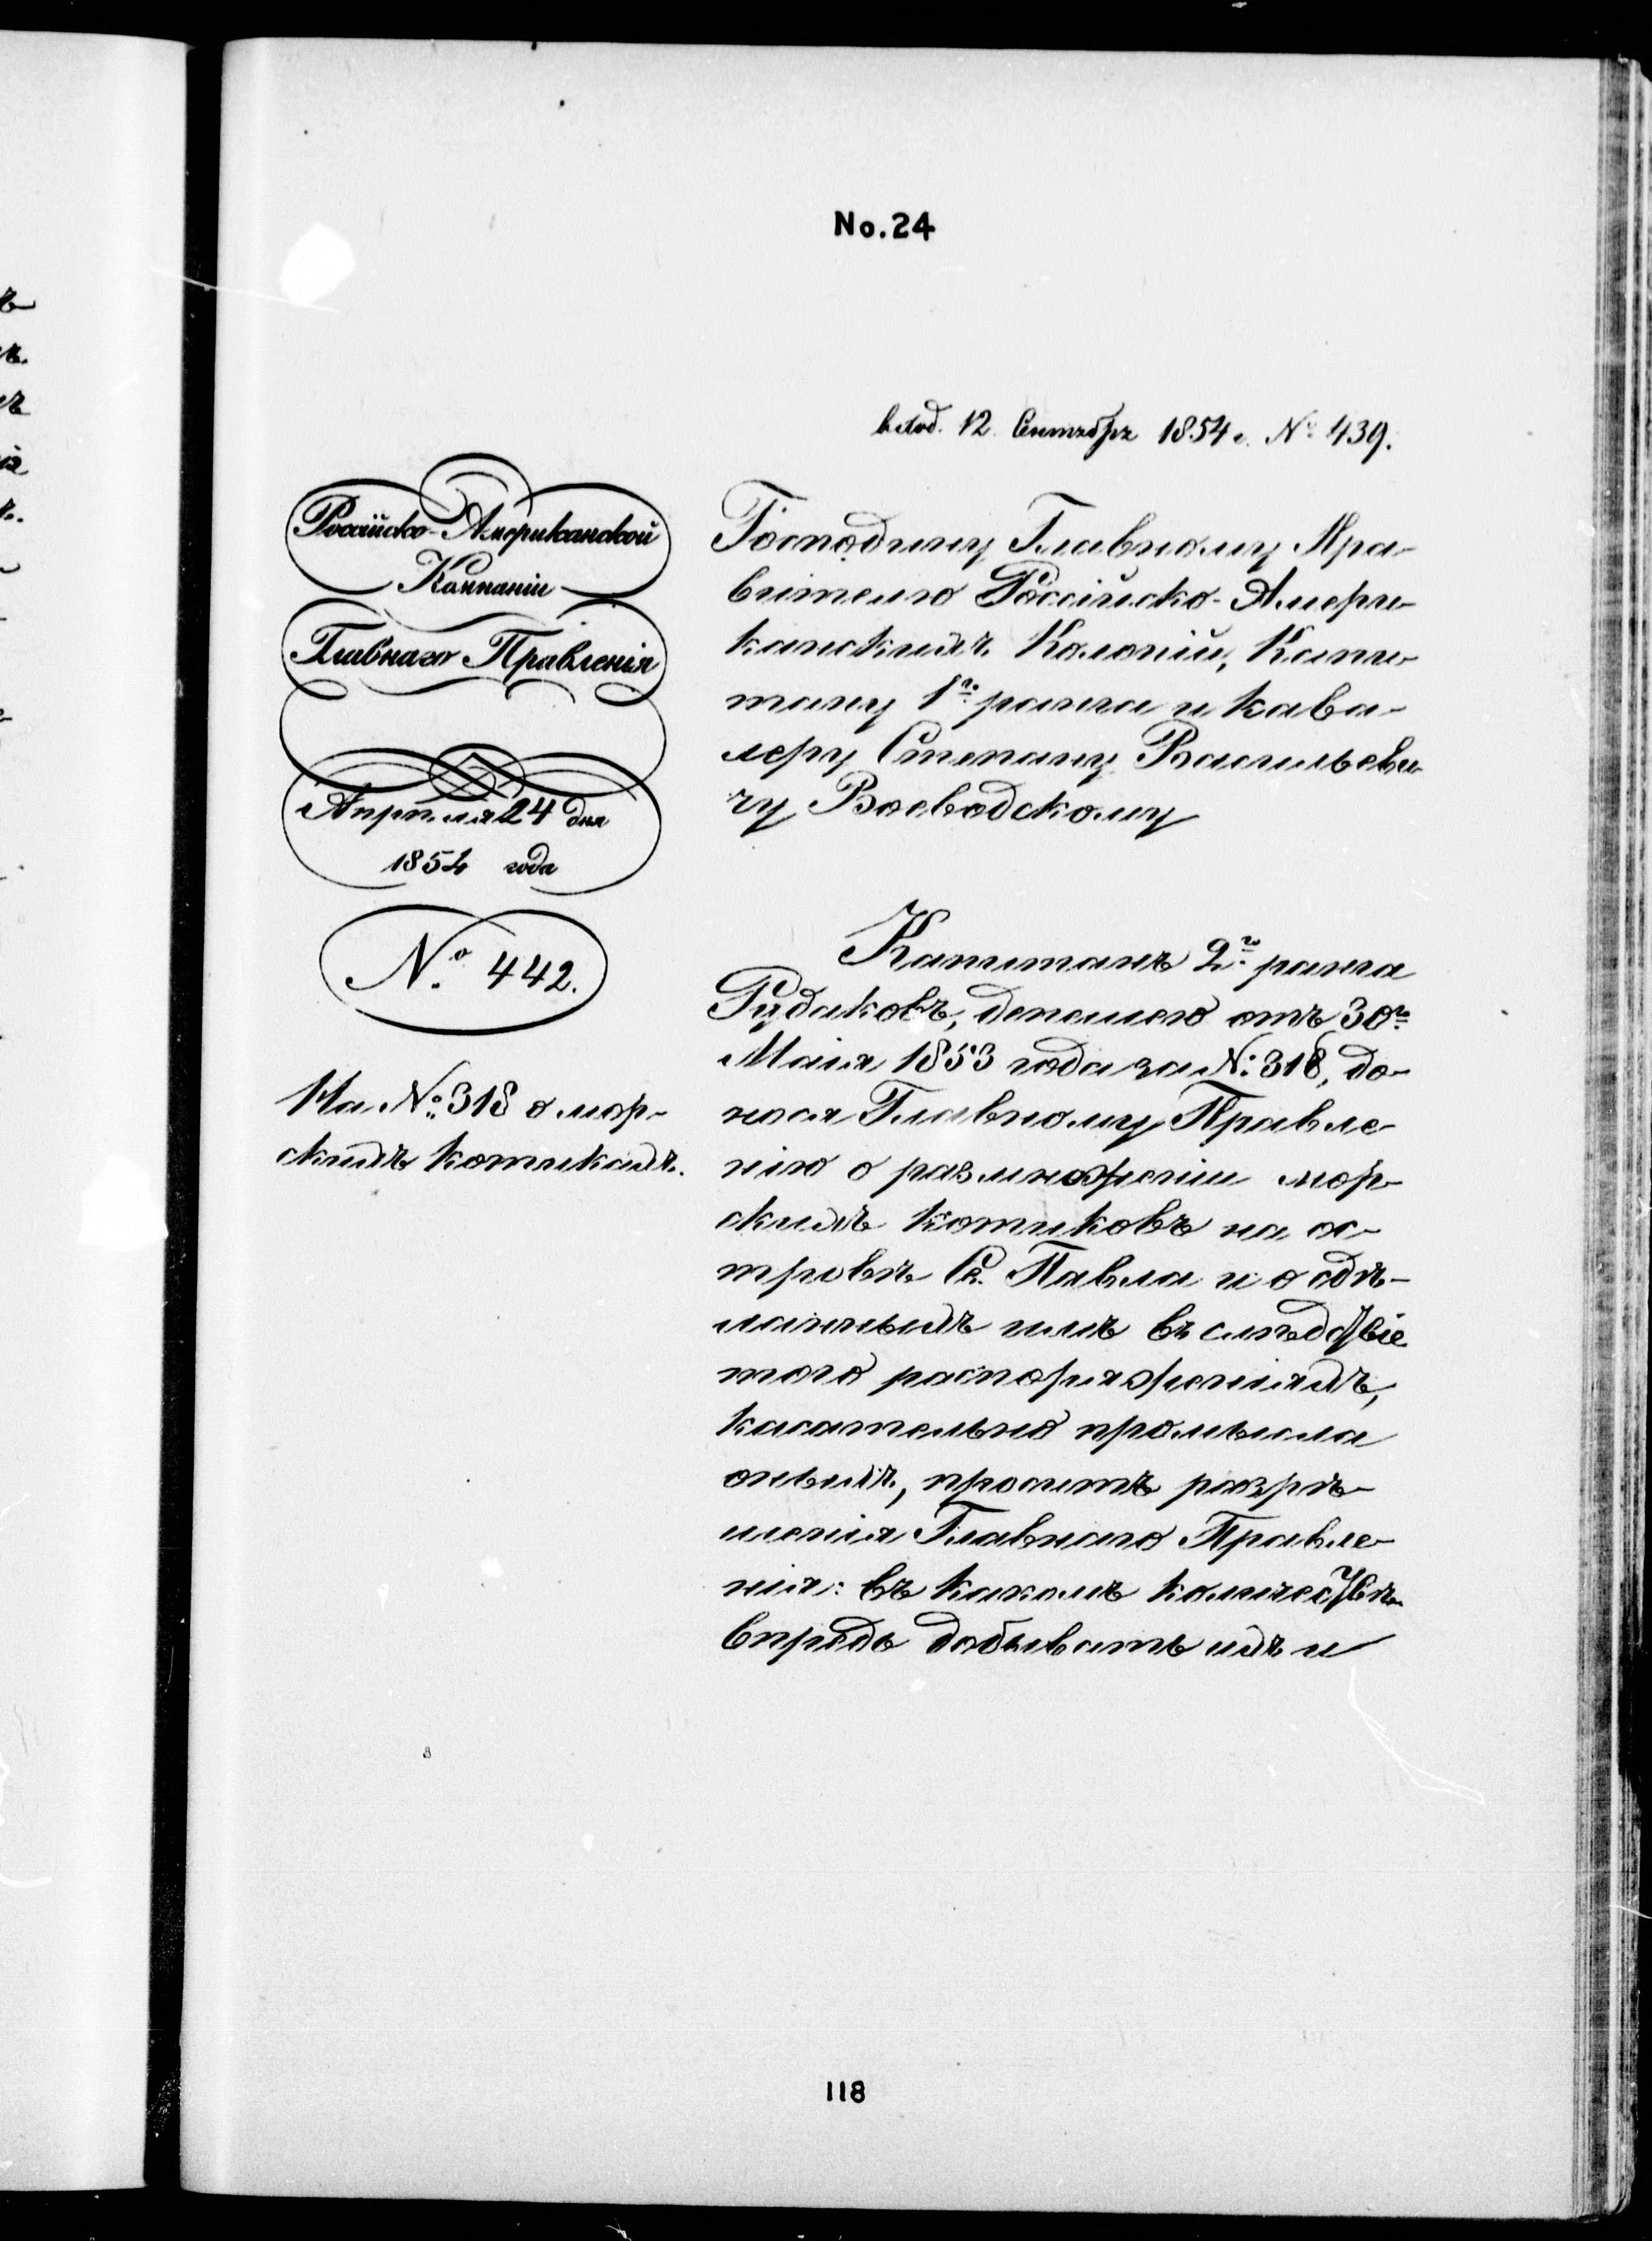 No. 24
вход. 12 Сентября 1854 г. № 439.
Россійско-Американской
Компаніи
Главнаго Правленія
Апрѣля 24 дня
1854 года
№ 442.
На № 318 о мор-
скихъ котикахъ.
Господину Главному Пра-
вителю Россійско-Амери-
канскихъ Колоній, Капи-
тану 1го ранга и кава-
леру Степану Васильеви-
чу Воеводскому
Капитанъ 2го ранга
Рудаковъ, депешею отъ 30го
Маія 1853 года за № 318, до-
нося Главному Правле-
нію о размноженіи мор-
скихъ котиковъ на ос-
тровѣ Св. Павла и о сдѣ-
ланныхъ имъ въ слѣдствіе
того распоряженіяхъ,
касательно промысла
оныхъ, проситъ разрѣ-
шенія Главнаго Правле-
нія: въ какомъ количествѣ
впредь добывать ихъ и
118